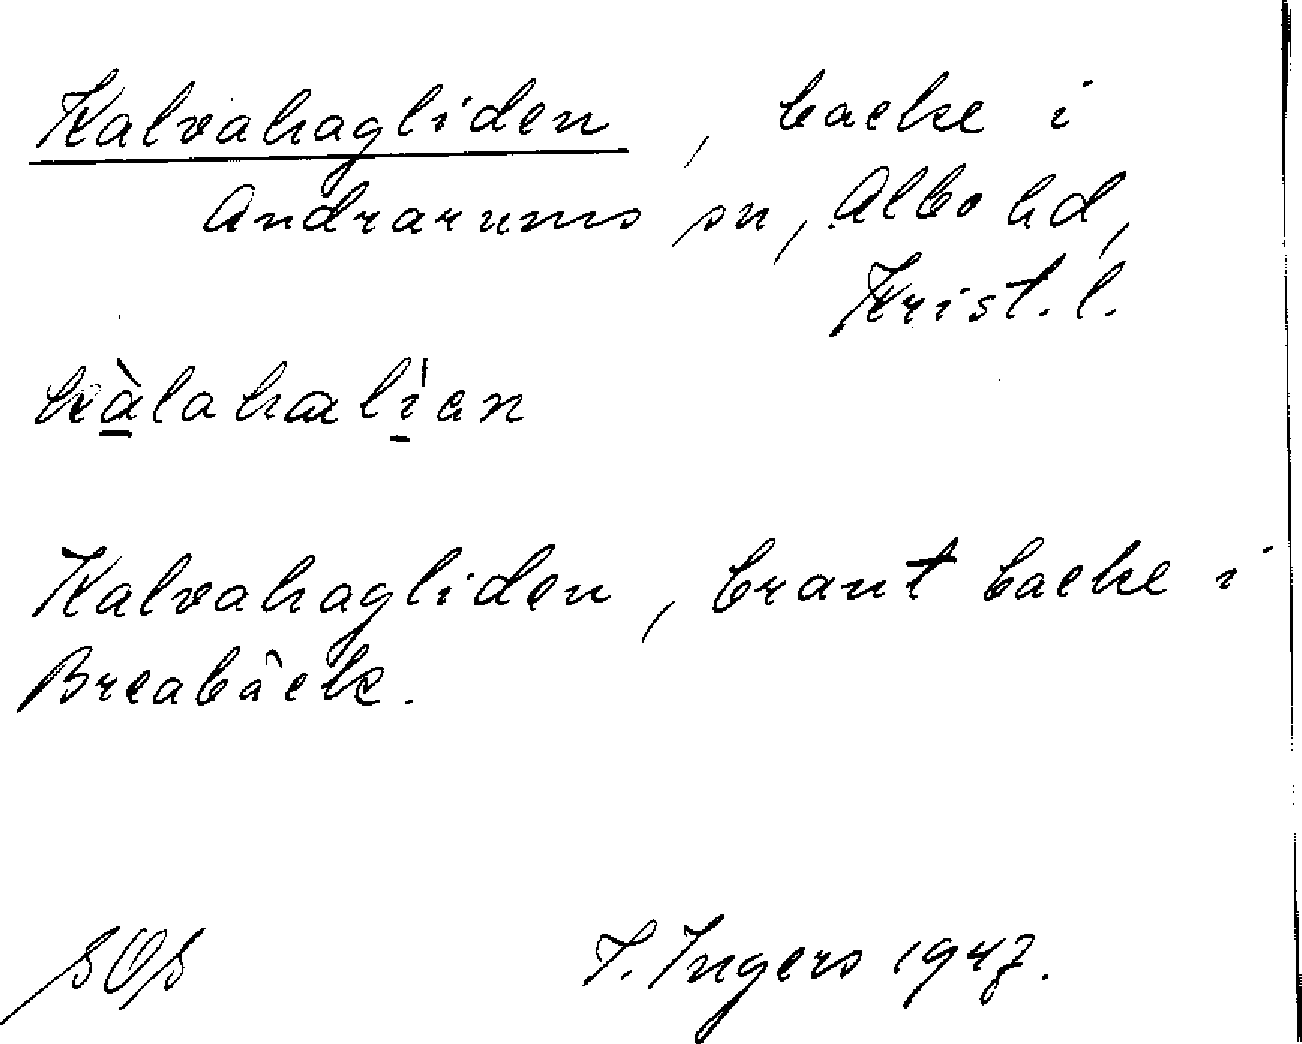 Kalvahagliden, backe i
Andrarums sn, Albo hd,
Krist. l.
kàlahalían
Kalvahagliden, brant backe i
Breabäck.
SOS I. Ingers 1947.